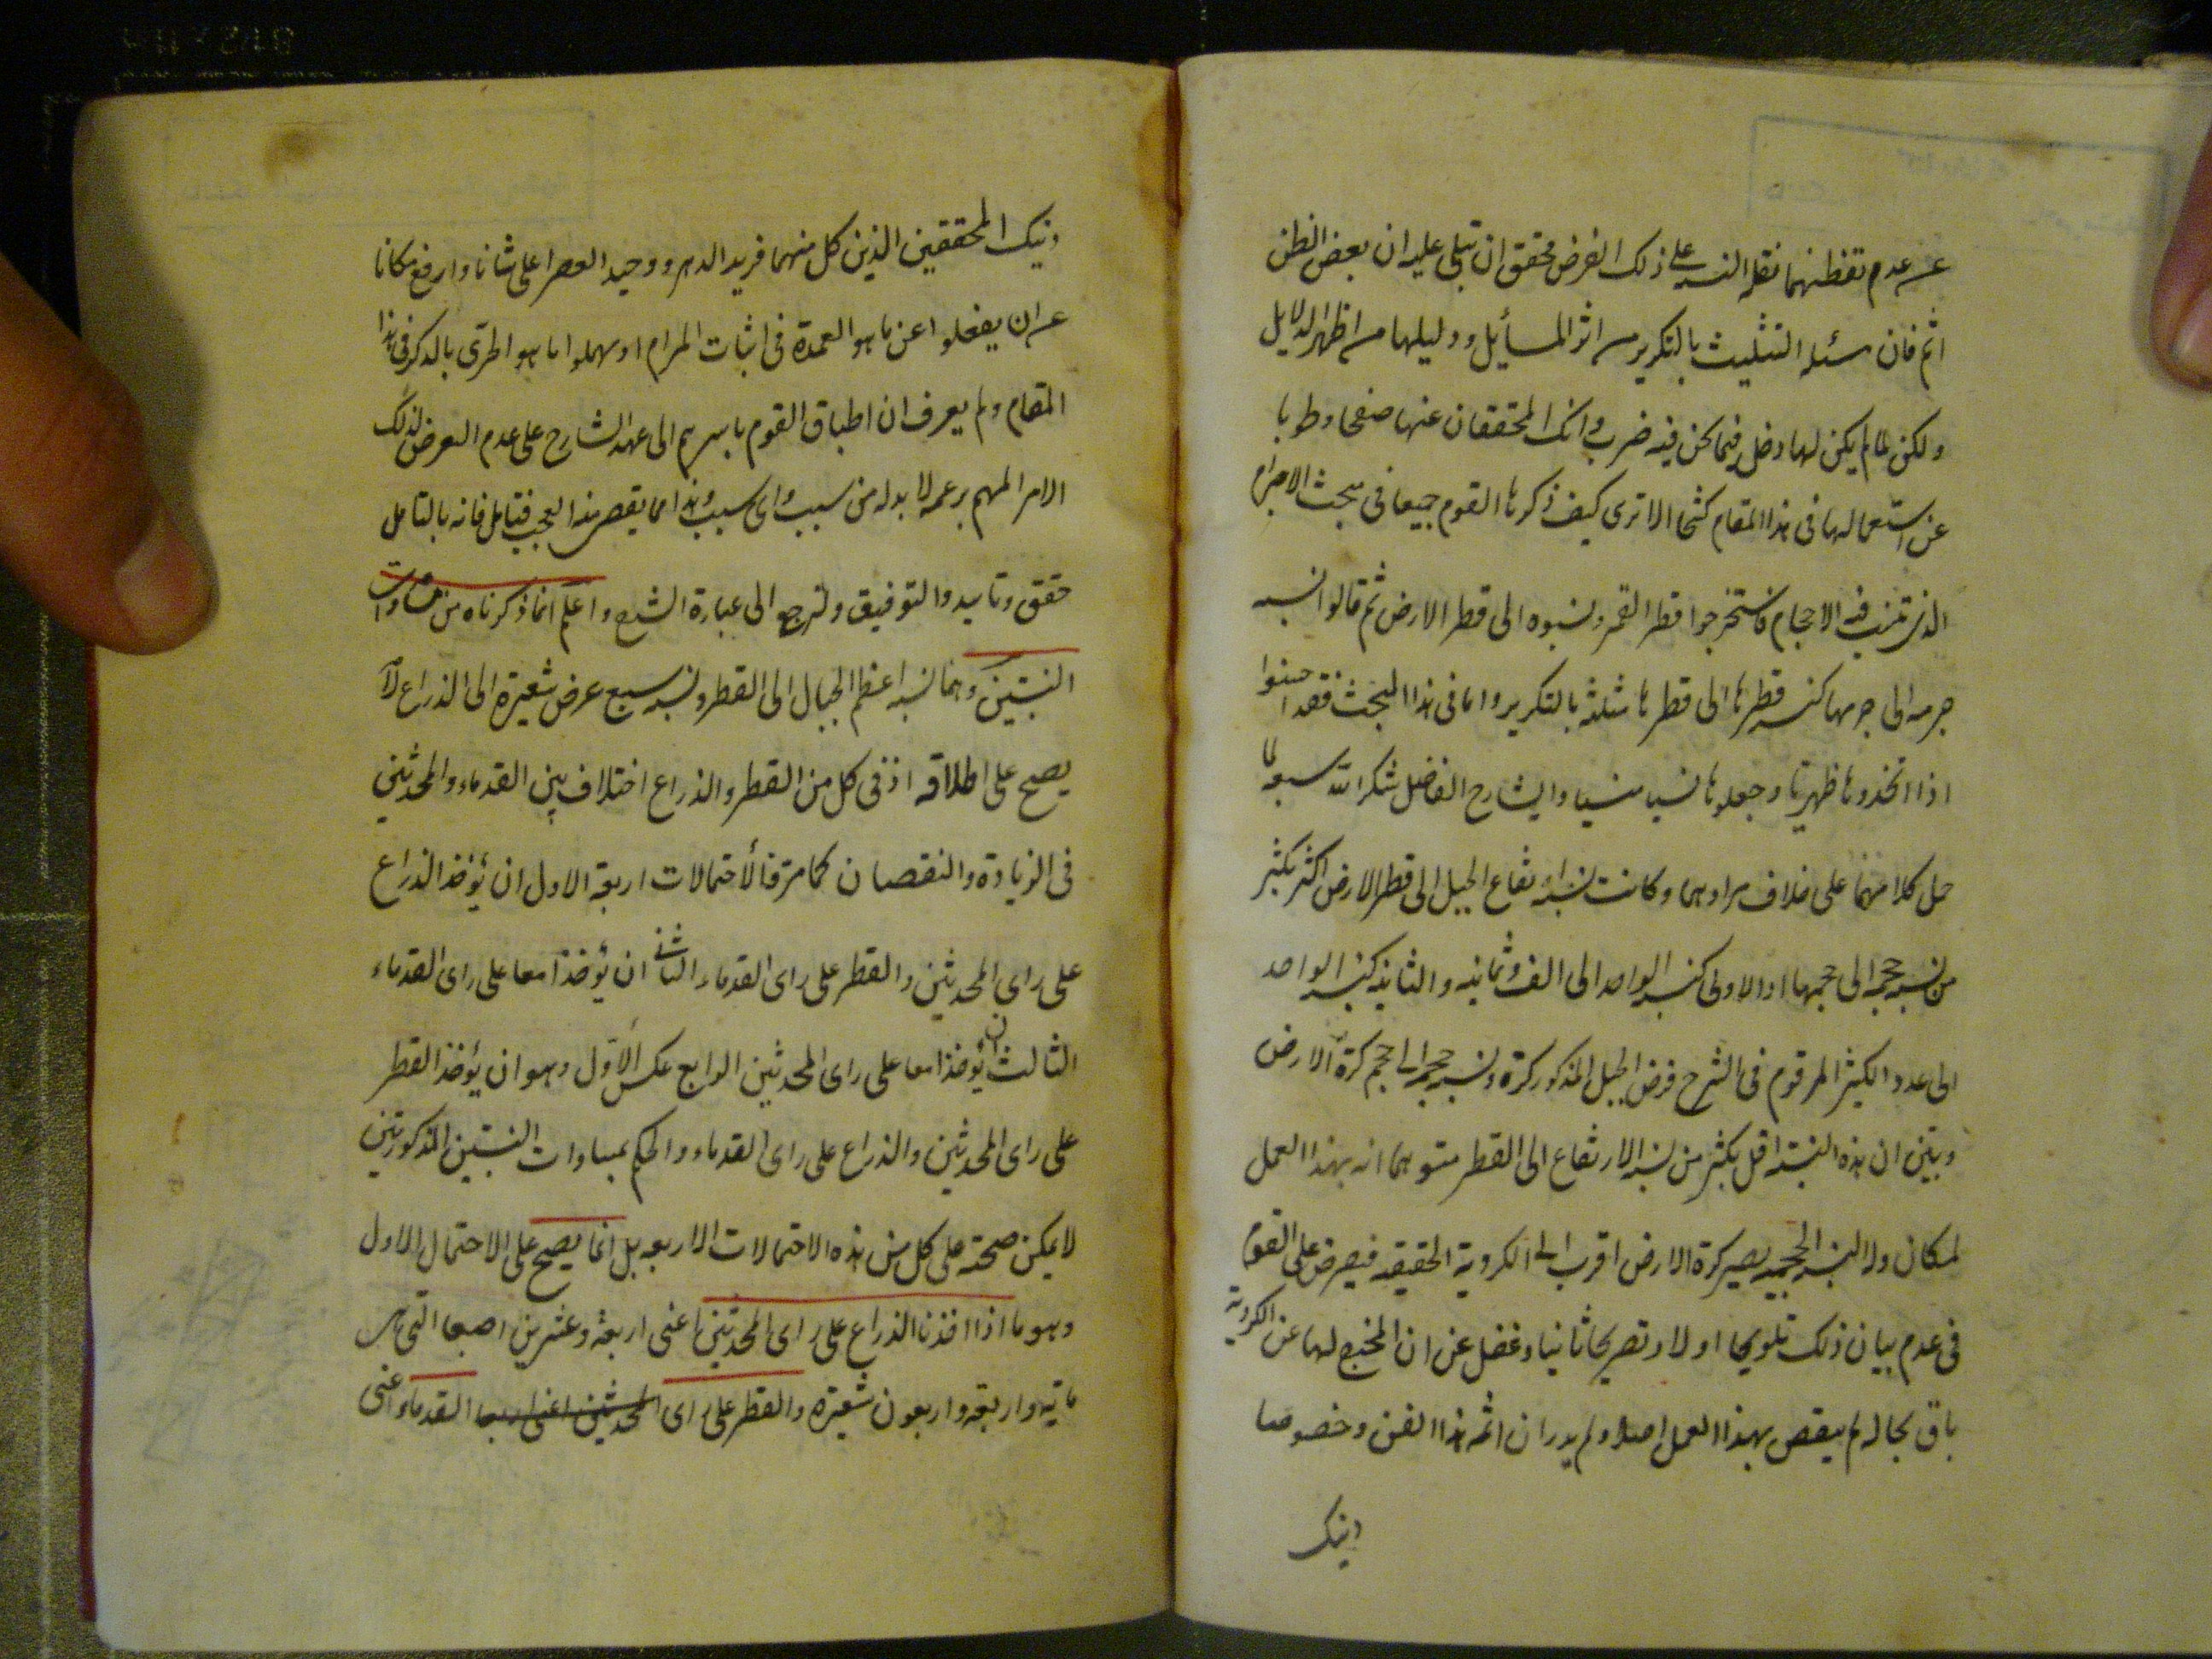 عن عدم تفطنهما فقله النسبة على ذلك الفرض محقق ان يتلى عليه ان بعض الظن
اثم فان مسئلة التثليث بالتكرير من اثر المسائل ودليلها من اظهر الدلايل
ولكن لما لم يكن لها دخل فيما نحن فيه ضرب ذانك المحققان عنها صفحا وطويا
عن استعمالها في هذا المقام كشحا الا ترى كيف ذكرها القوم جميعا في مبحث الاجرام
الذي تنسب فيه الاحجام فاستخرجوا قطر القمر ونسبوه الى قطر الارض ثم قالوا نسبة
جرمه الى جرمها كنسبة قطرها الى قطرها مثلثة بالتكرير واما في هذا المبحث فقد احسنوا
اذا اتخذوها ظهريا وجعلوها نسيا منسيا والشارح الفاضل شكر الله سعيه لما
حمل كلامهما على خلاف مرادهما وكانت نسبة ارتفاع الجبل الى قطر الارض اكثر بكثير
من نسبة حجمه الى حجمها اذ الاولى كنسبة الواحد الى الف وثمانية والثانية كنسبة الواحد
الى عدد الكثير المرقوم في الشرح فرض الجبل المذكور كرة ونسب حجمه الى حجم كرة الارض
وبين ان هذه النسبة اقل بكثير من نسبة الارتفاع الى القطر متوهما انه بهذا العمل
لمكان وله النسبة الحجمية يصير كرة الارض اقرب الى الكروية الحقيقة فيعرض على القوم
في عدم بيان ذلك تلويحا اولا وتصريحا ثانيا وغفل عن ان المخرج لها عن الكروية
باق بحاله لم ينقص بهذا العمل اصلا ولم يدر ان ائمة هذا الفن وخصوصا
ذينك
ذينك المحققين الذين كل منهما فريد الدهر ووحيد العصر اعلى شانا وارفع مكانا
عن ان يغفلوا عن ما هو العمدة في اثبات المرام او يهملوا ما هو الحرى بالذكر في هذا
المقام ولم يعرف ان اطباق القوم باسرهم الى عهد الشارح على عدم التعرض لذلك
الامر المهم بزعمه لا بد له من سبب واى سبب وهذا مما يقضى منه العجب فتامل فانه بالتامل
حقق وتاييد والتوفيق ولنرجع الى عبارة الشرح واعلم انما ذكرناه من مساوات
النسبتين وهما نسبة اعظم الجبال الى القطر ونسبة سبع عرض شعيرة الى الذراع لا
يصح على اطلاقه اذ في كل من القطر والذراع اختلاف بين القدماء والمحدثين
في الزيادة والنقصان كما مر فالاحتمالات اربعة الاول ان يؤخذ الذراع
على راى المحدثين والقطر على راى القدماء الثانى ان يؤخذا معا على راى القدماء
الثالث ان يؤخذا معا على راى المحدثين الرابع عكس الاول وهو ان يؤخذ القطر
على راى المحدثين والذراع على راى القدماء والحكم بمساوات النسبتين المذكورتين
لا يمكن صحته على كل من هذه الاحتمالات الاربعه بل انما يصح على الاحتمال الاول
وهو ما اذا اخذنا الذراع على راى المحدثين اعنى اربعة وعشرين اصبعا التى هى
مائة واربعة واربعون شعيرة والقطر على راى المحدثين اعنى اربعا القدماء اعنى